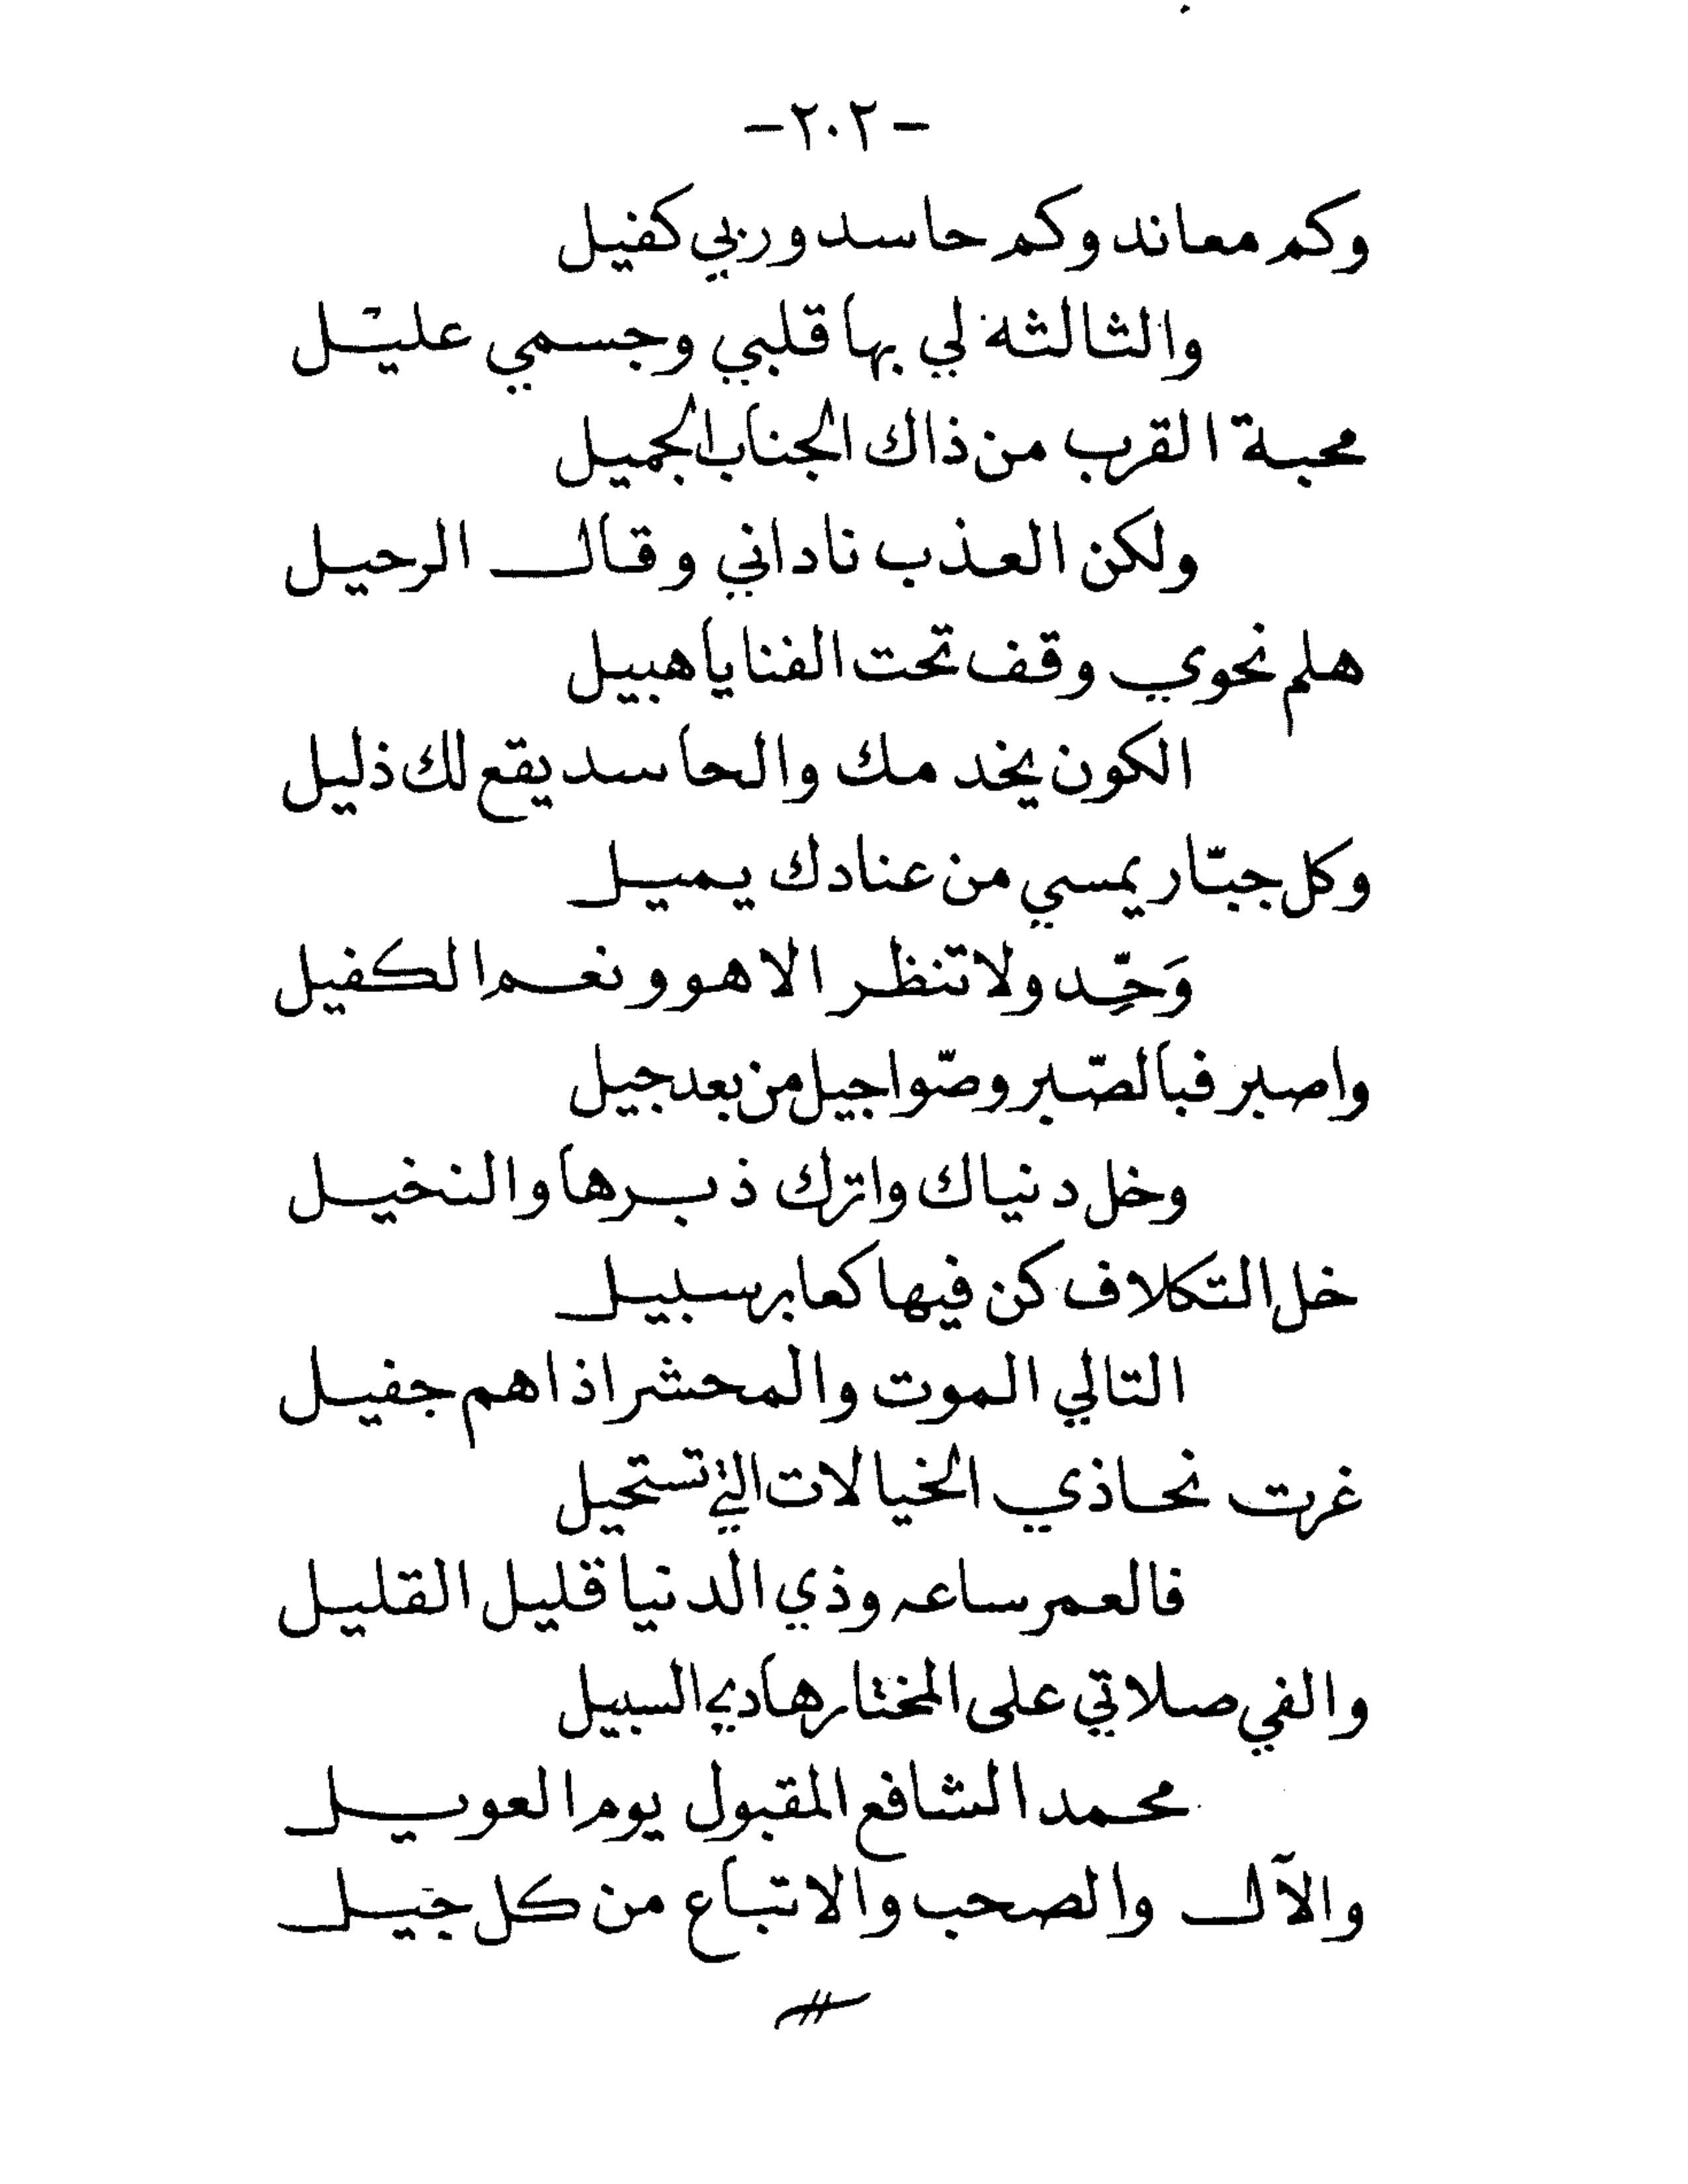 -٢٠٢-
وكم معاند وكم حاسد وربي كفيل
والثالثة لي بها قلبي وجسمي عليل
محبة القرب من ذاك الجناب الجميل
ولكن العذب ناداني وقال الرحيل
هلم نحوي وقف تحت الفنا يا هبيل
الكون يخدمك والحاسد يقع لك ذليل
وكل جبّار يمسي من عنادك يميل
وَحِّد ولا تنظر الا هو ونعم الكفيل
واصبر فبالصّبر وصّوا جيل من بعد جيل
وخل دنياك واترك ذبرها والنخيل
خل التكلاف كن فيها كعابر سبيل
التالي الموت والمحشر اذا هم جفيل
غرت نحاذي الخيالات التي تستحيل
فالعمر ساعه وذي الدنيا قليل القليل
والفي صلاتي على المختار هادي السبيل
محمد الشافع المقبول يوم العويل
والآل والصحب والاتباع من كل جيل